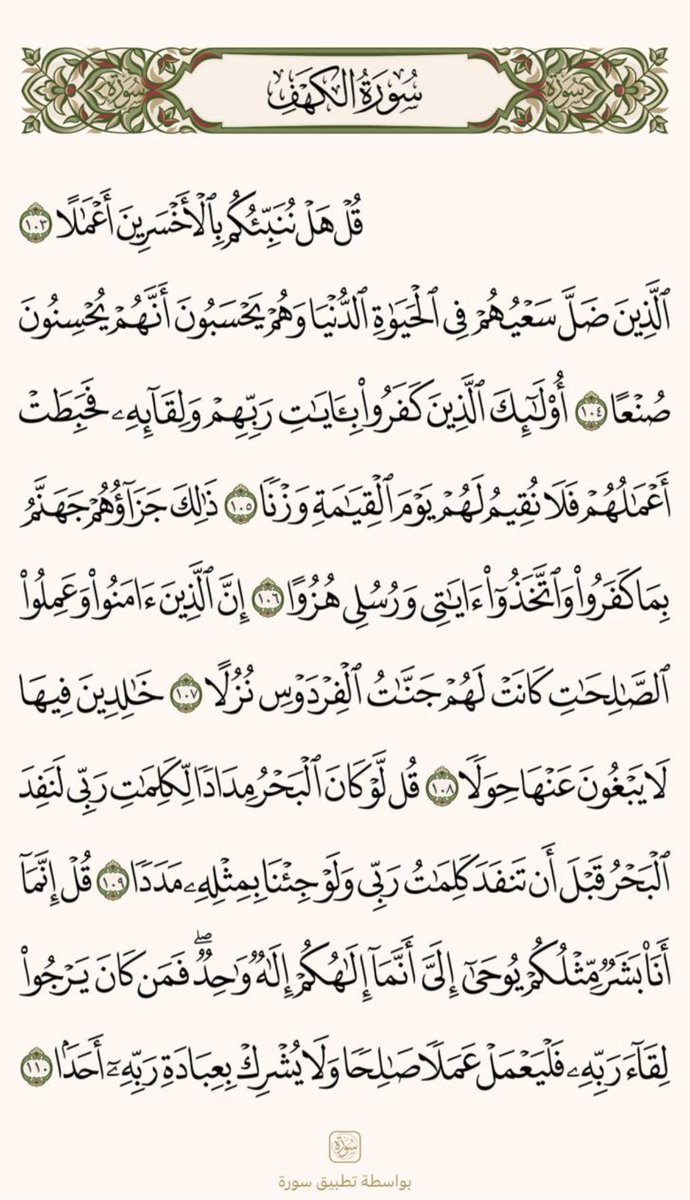 سُورَةُ الكَهْفِ
سورة سورة
قُلْ هَلْ نُنَبِّئُكُم بِٱلْأَخْسَرِينَ أَعْمَٰلًا ١٠٣
ٱلَّذِينَ ضَلَّ سَعْيُهُمْ فِى ٱلْحَيَوٰةِ ٱلدُّنْيَا وَهُمْ يَحْسَبُونَ أَنَّهُمْ يُحْسِنُونَ
صُنْعًا ١٠٤ أُو۟لَٰٓئِكَ ٱلَّذِينَ كَفَرُوا۟ بِـَٔايَٰتِ رَبِّهِمْ وَلِقَآئِهِۦ فَحَبِطَتْ
أَعْمَٰلُهُمْ فَلَا نُقِيمُ لَهُمْ يَوْمَ ٱلْقِيَٰمَةِ وَزْنًا ١٠٥ ذَٰلِكَ جَزَآؤُهُمْ جَهَنَّمُ
بِمَا كَفَرُوا۟ وَٱتَّخَذُوٓا۟ ءَايَٰتِى وَرُسُلِى هُزُوًا ١٠٦ إِنَّ ٱلَّذِينَ ءَامَنُوا۟ وَعَمِلُوا۟
ٱلصَّٰلِحَٰتِ كَانَتْ لَهُمْ جَنَّٰتُ ٱلْفِرْدَوْسِ نُزُلًا ١٠٧ خَٰلِدِينَ فِيهَا
لَا يَبْغُونَ عَنْهَا حِوَلًا ١٠٨ قُل لَّوْ كَانَ ٱلْبَحْرُ مِدَادًا لِّكَلِمَٰتِ رَبِّى لَنَفِدَ
ٱلْبَحْرُ قَبْلَ أَن تَنفَدَ كَلِمَٰتُ رَبِّى وَلَوْ جِئْنَا بِمِثْلِهِۦ مَدَدًا ١٠٩ قُلْ إِنَّمَآ
أَنَا۠ بَشَرٌ مِّثْلُكُمْ يُوحَىٰٓ إِلَىَّ أَنَّمَآ إِلَٰهُكُمْ إِلَٰهٌ وَٰحِدٌ ۖ فَمَن كَانَ يَرْجُوا۟
لِقَآءَ رَبِّهِۦ فَلْيَعْمَلْ عَمَلًا صَٰلِحًا وَلَا يُشْرِكْ بِعِبَادَةِ رَبِّهِۦٓ أَحَدًۢا ١١٠
سورة
بواسطة تطبيق سورة